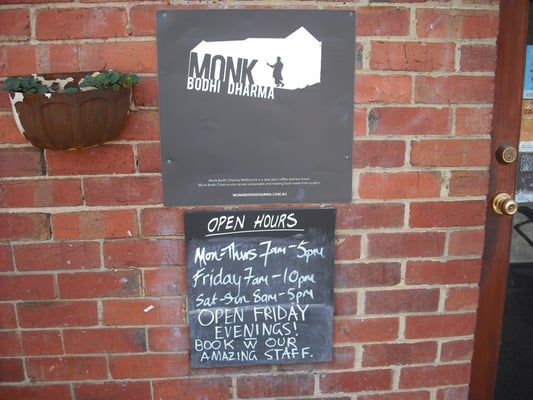 MONK
BODHI DHARMA
Monk Bodhi Dharma Melbourne is a specialist coffee and tea house.
Monk Bodhi Dharma also serves sustainable and inspiring food made from scratch
WWW.MONKBODHIDHARMA.COM.AU
OPEN HOURS
Mon-Thurs 7am-5pm
Friday 7am-10pm
Sat-Sun 8am-5pm
OPEN FRIDAY
EVENINGS!
BOOK W OUR
AMAZING STAFF.